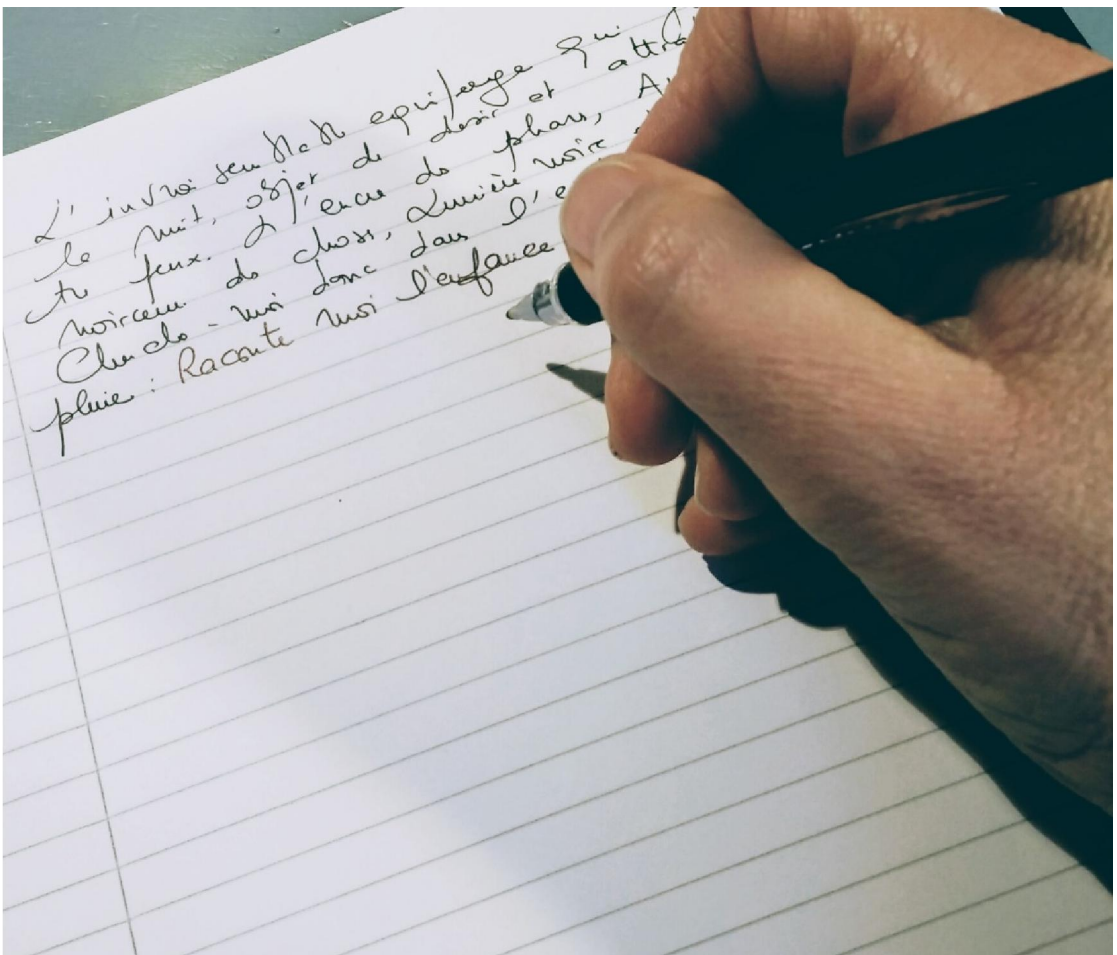 L'invraisemblable equipage qui
la nuit, objet de desir et
tes feux. L'encre des phares,
noirceur des choses, Lumière noire
Cherche-moi donc dans
pluie : Raconte moi l'enfance